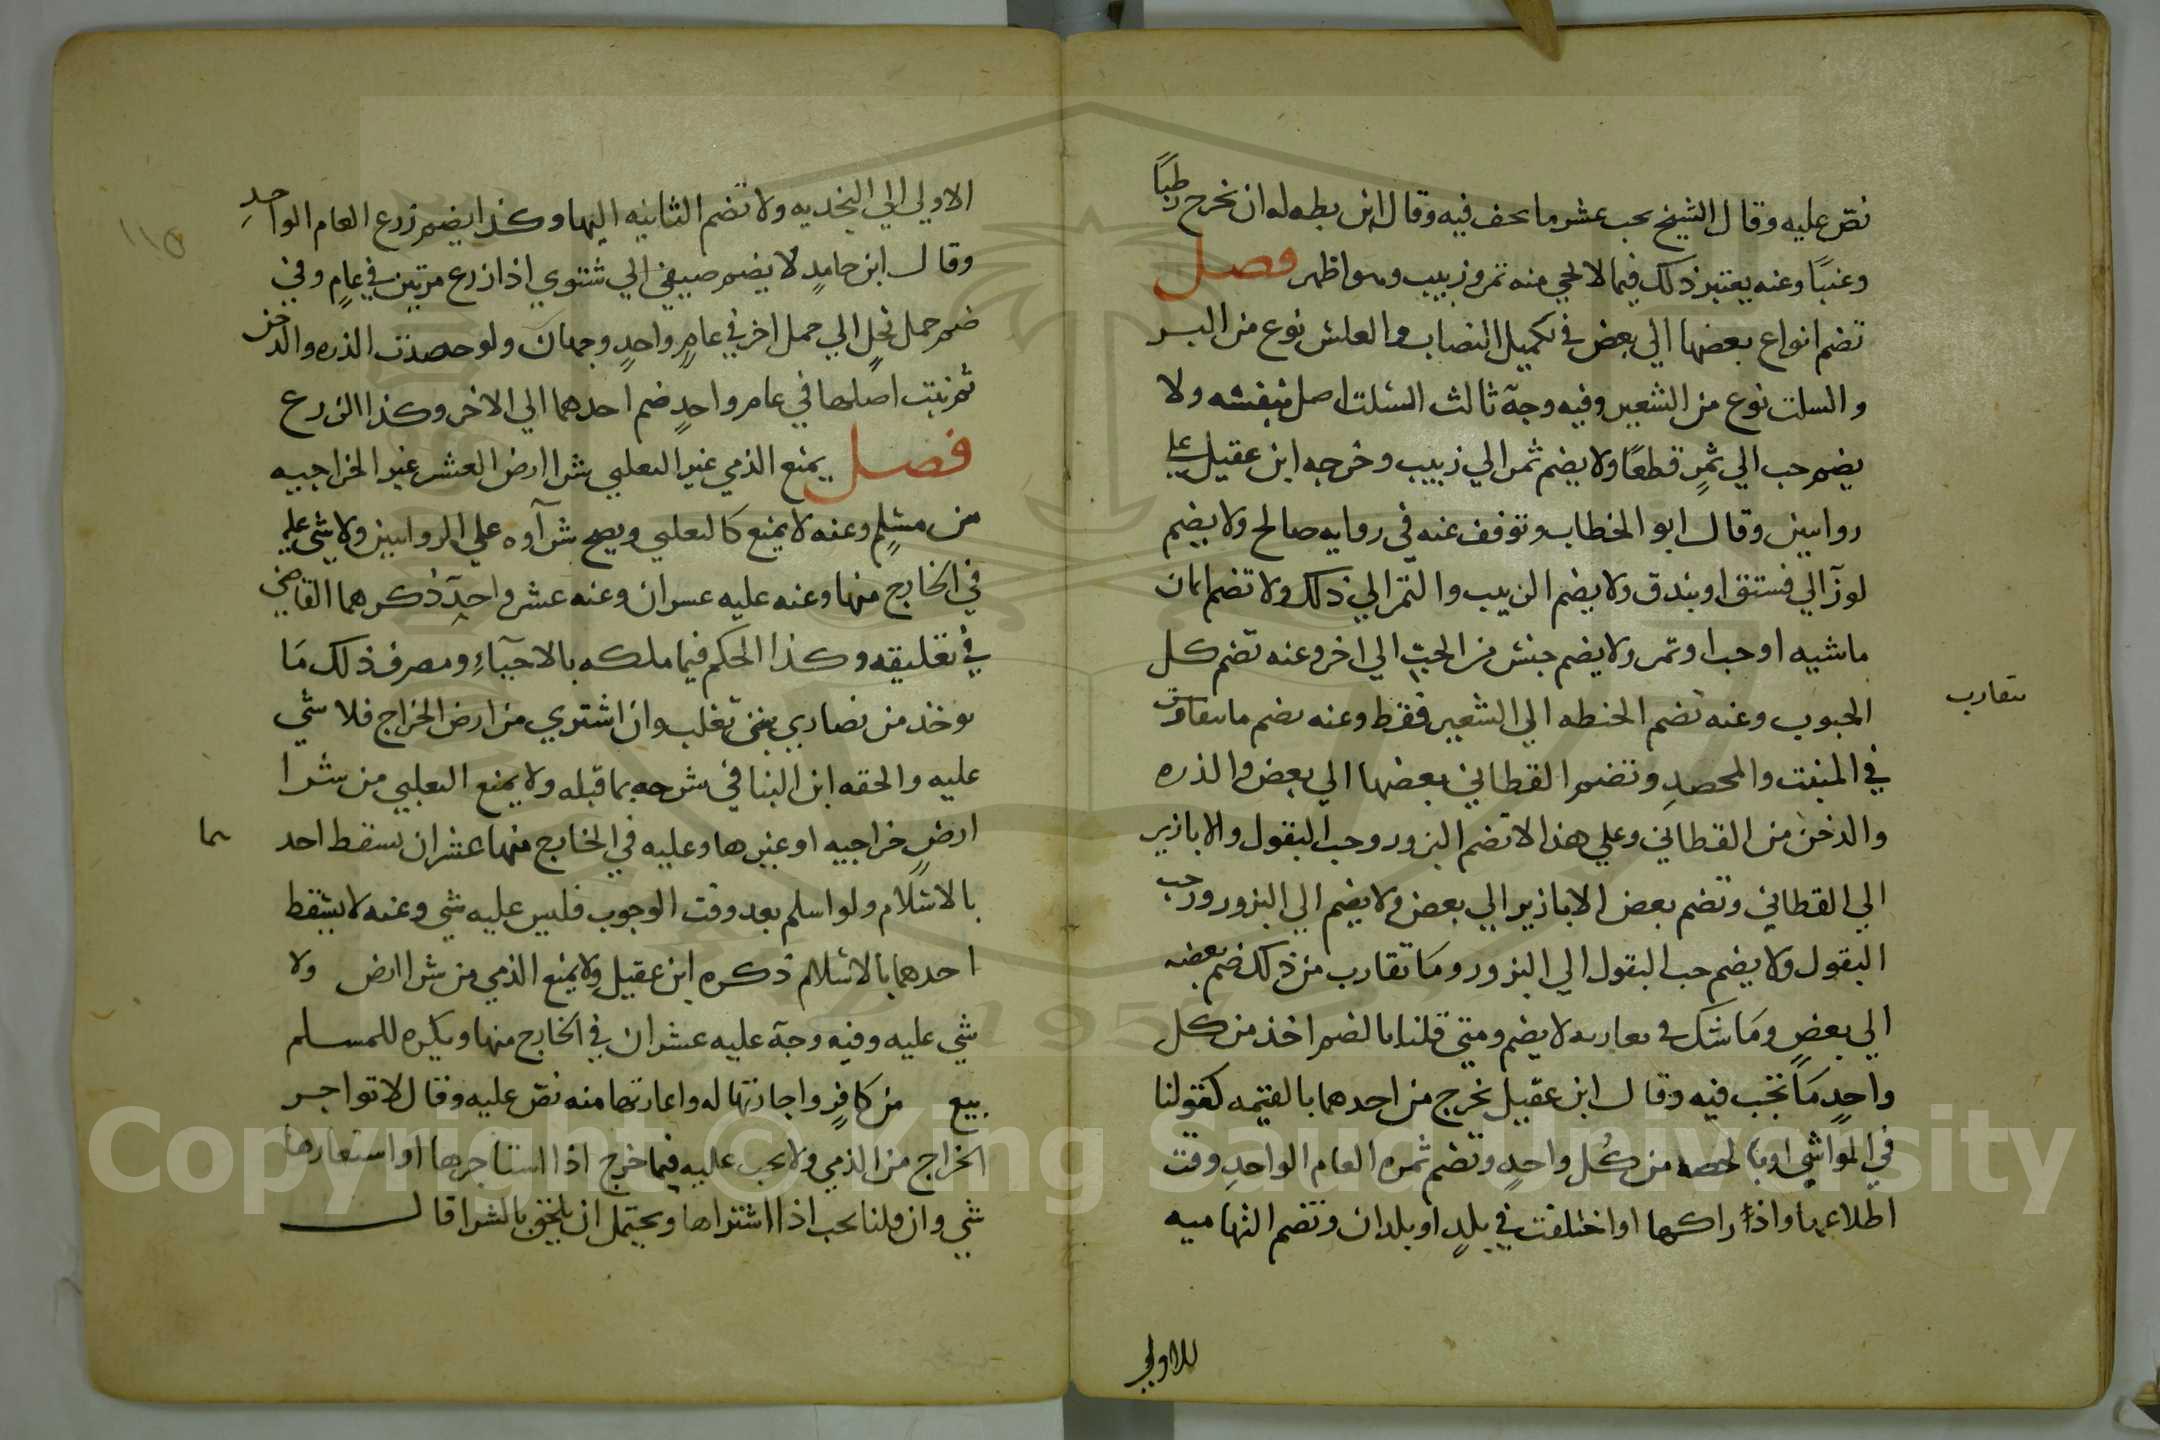 نص عليه وقال الشيخ يجب عشر ما يجف فيه وقال ابن بطه له ان يخرج رطبًا
وعنبًا وعنه يعتبر ذلك فيما لا يجي منه تمر وزبيب وهو اظهر فصل
تضم انواع بعضها الي بعض في تكميل النصاب والعلس نوع من البر
والسلت نوع من الشعير وفيه وجه ثالث السلت اصل بنفسه ولا
يضم حب الي ثمرٍ قطعًا ولا يضم ثمر الي زبيب وخرجه ابن عقيل علي
روايتين وقال ابو الخطاب وتوقف عنه في روايه صالح ولا يضم
لوز الي فستق او بندق ولا يضم الزبيب والتمر الي ذلك ولا تضم اثمان
ماشيه او حب او تمر ولا يضم جنس من الحب الي اخر وعنه تضم كل
الحبوب وعنه تضم الحنطه الي الشعير فقط وعنه يضم ما يتفاوت
يتقارب
في المنبت والمحصد وتضم القطاني بعضها الي بعض والذره
والدخن من القطاني وعلي هذا لا تضم البزور وحب البقول والابازير
الي القطاني وتضم بعض الابازير الي بعض ولا يضم الي البزور وحب
البقول ولا يضم حب البقول الي البزور وما تقارب من ذلك ضم بعضه
الي بعض وما شك في تقاربه لا يضم ومتي قلنا بالضم اخذ من كل
واحدٍ ما يجب فيه وقال ابن عقيل يخرج من احدهما بالقيمه كقولنا
في المواشي او بالحصه من كل واحدٍ وتضم ثمره العام الواحد وقت
اطلاعها واذا راكها او اختلفت في بلدٍ او بلدان وتضم التهاميه
للاولي
١١٥
الاولي الي النجديه ولا تضم الثانيه اليها وكذا يضم زرع العام الواحد
وقال ابن حامدٍ لا يضم صيفي الي شتوي اذا زرع مرتين في عامٍ وفي
ضم حمل نخلٍ الي حمل اخر في عامٍ واحدٍ وجهان ولو حصدت الذره والدخن
ثم نبت اصلها في عام واحدٍ ضم احدهما الي الاخر وكذا الزرع
فصل يمنع الذمي غير التغلبي شرا ارض العشر غير الخراجيه
من مسلمٍ وعنه لا يمنع كالتغلبي ويصح شرآوه علي الروايتين ولا شي عليه
في الخارج منها وعنه عليه عشران وعنه عشر واحد ذكرهما القاضي
في تعليقه وكذا الحكم فيما ملكه بالاحياء ومصرف ذلك ما
يوخذ من نصاري بني تغلب وان اشتري من ارض الخراج فلا شي
عليه والحقه ابن البنا في شرحه بما قبله ولا يمنع التغلبي من شرا
ارضٍ خراجيه او غيرها وعليه في الخارج منها عشران يسقط احد
هما
بالاسلام ولو اسلم بعد وقت الوجوب فليس عليه شي وعنه لا يسقط
احدهما بالاسلام ذكره ابن عقيل ولا يمنع الذمي من شرا ارض ولا
شي عليه وفيه وجه عليه عشران في الخارج منها ويكره للمسلم
بيع من كافرٍ واجارتها له واعارتها منه نص عليه وقال لا تواجر
الخراج من الذمي ولا يجب عليه فيما خرج اذا استاجرها او استعارها
شي وان قلنا يجب اذا اشتراها ويحتمل ان يلحق بالشرا قال